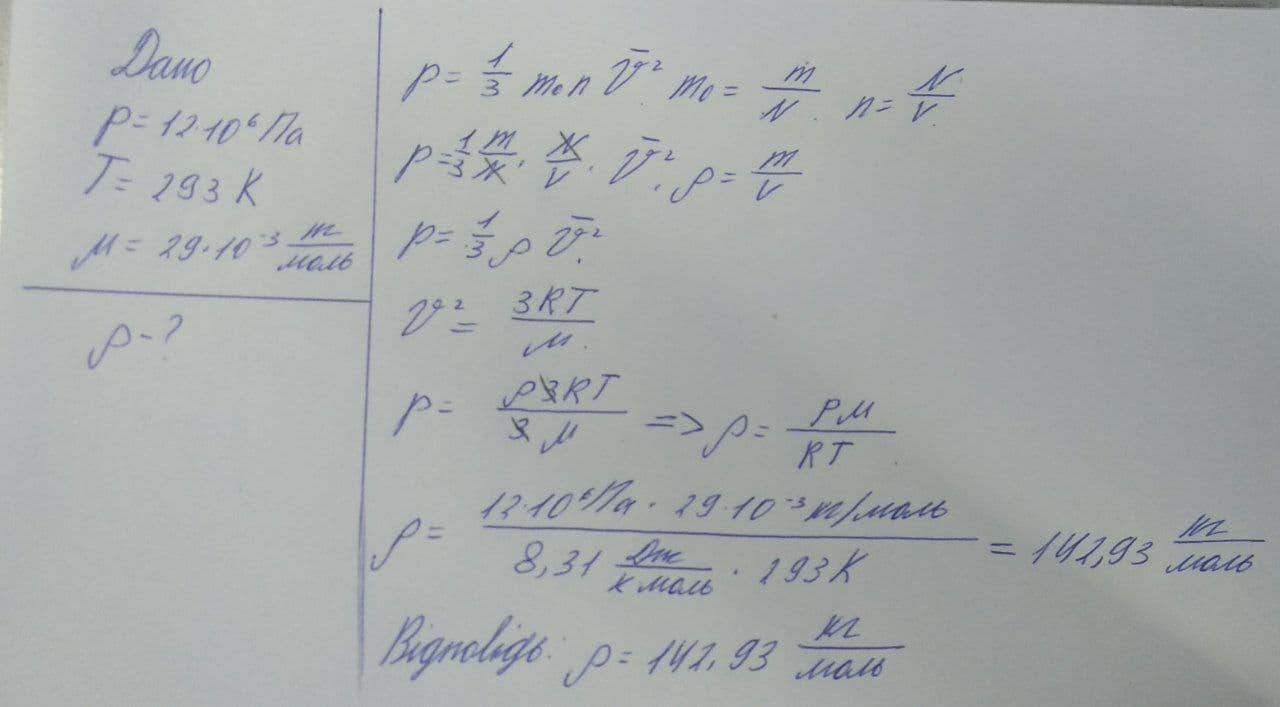 Дано
P = 12·10⁶ Па
T = 293 K
μ = 29·10⁻³ кг/моль
ρ - ?
p = 1/3 m₀ n v̄² m₀ = m/N. n = N/V.
p = 1/3 m/N · N/V · v̄². ρ = m/V
p = 1/3 ρ v̄².
v² = 3RT/μ.
p = ρ3RT/3μ => ρ = Pμ/RT
ρ = 12·10⁶ Па · 29·10⁻³ кг/моль / 8,31 Дж/К моль · 293 K = 142,93 кг/моль
Відповідь: ρ = 142,93 кг/моль